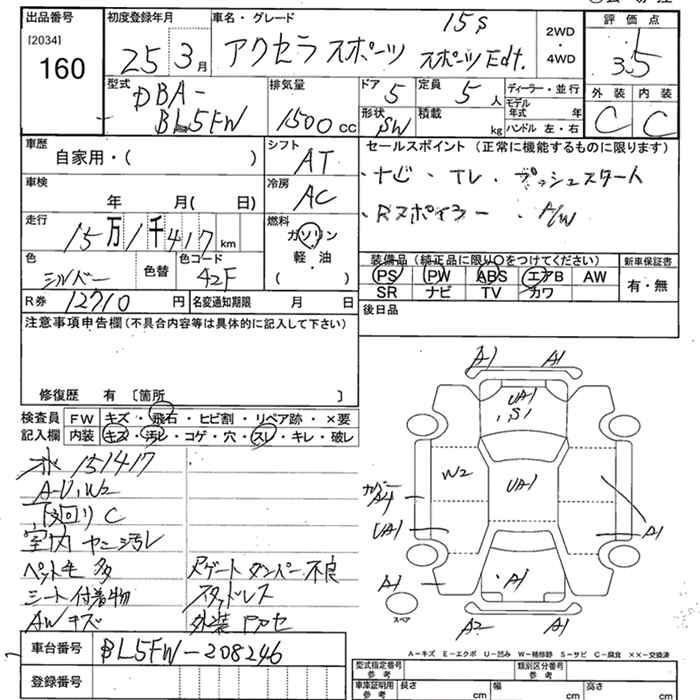 出品番号 初度登録年月 車名・グレード 15S 評価点
[2034]
160
25 3月 アクセラスポーツ スポーツEdt. 2WD・4WD 3.5
型式 DBA-BL5FW 排気量 1500cc ドア 5 定員 5人 ディーラー・並行 外装 内装
形状 SW 積載 kg モデル年式 年 ハンドル 左・右 C C
車歴 自家用・( ) シフト AT セールスポイント(正常に機能するものに限ります)
車検 年 月( 日) 冷房 AC ・ナビ・TV・プッシュスタート
走行 15万1千417km 燃料 ガソリン・軽・油・( ) ・Rスポイラー・A/W
色 シルバー 色替 色コード 42F 装備品(純正品に限り○をつけてください) 新車保証書
PS PW ABS エアB AW 有・無
SR ナビ TV カワ
R券 12710円 名変通知期限 月 日 後日品
注意事項申告欄(不具合内容等は具体的に記入して下さい)
修復歴 有〔箇所 〕
検査員 FW キズ・飛石・ヒビ割・リペア跡・×要
記入欄 内装 キズ・汚レ・コゲ・穴・スレ・キレ・破レ
151417
A-U、W2
下廻りC
室内ヤニ汚レ
ペット毛多 Rゲートダンパー不良
シート付着物 スタッドレス
AWキズ 外装
車台番号 BL5FW-208246
登録番号
A1 A1
UA1
S1
W2 UA1
A4
UA1 A1
A1 A1
スペア
A2 A1
A-キズ E-エクボ U-凹み W-補修跡 S-サビ C-腐食 ××-交換済
型式指定番号 参考 類別区分番号 参考
車庫証明用 参考 長さ cm 幅 cm 高さ cm